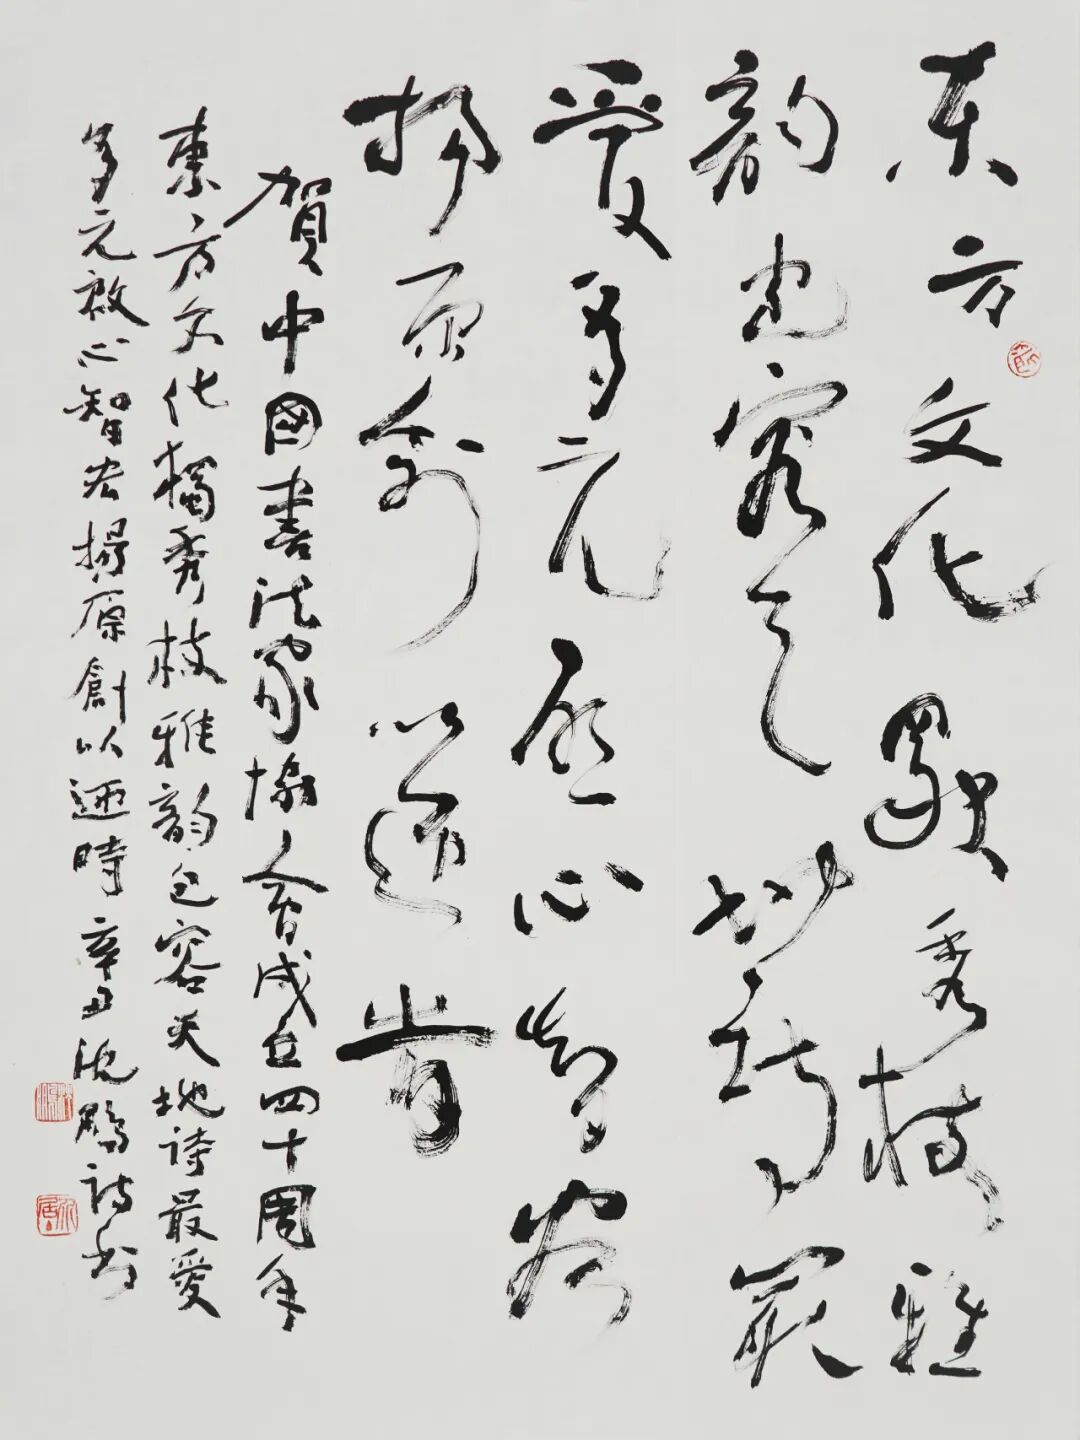 東方文化獨秀枝雅
韵包容天地詩最
愛多元啟心智宏
揚原創以適旹
賀中國書法家協會成立四十周年
東方文化獨秀枝雅韵包容天地詩最愛
多元啟心智宏揚原創以適時辛丑沈鵬詩書